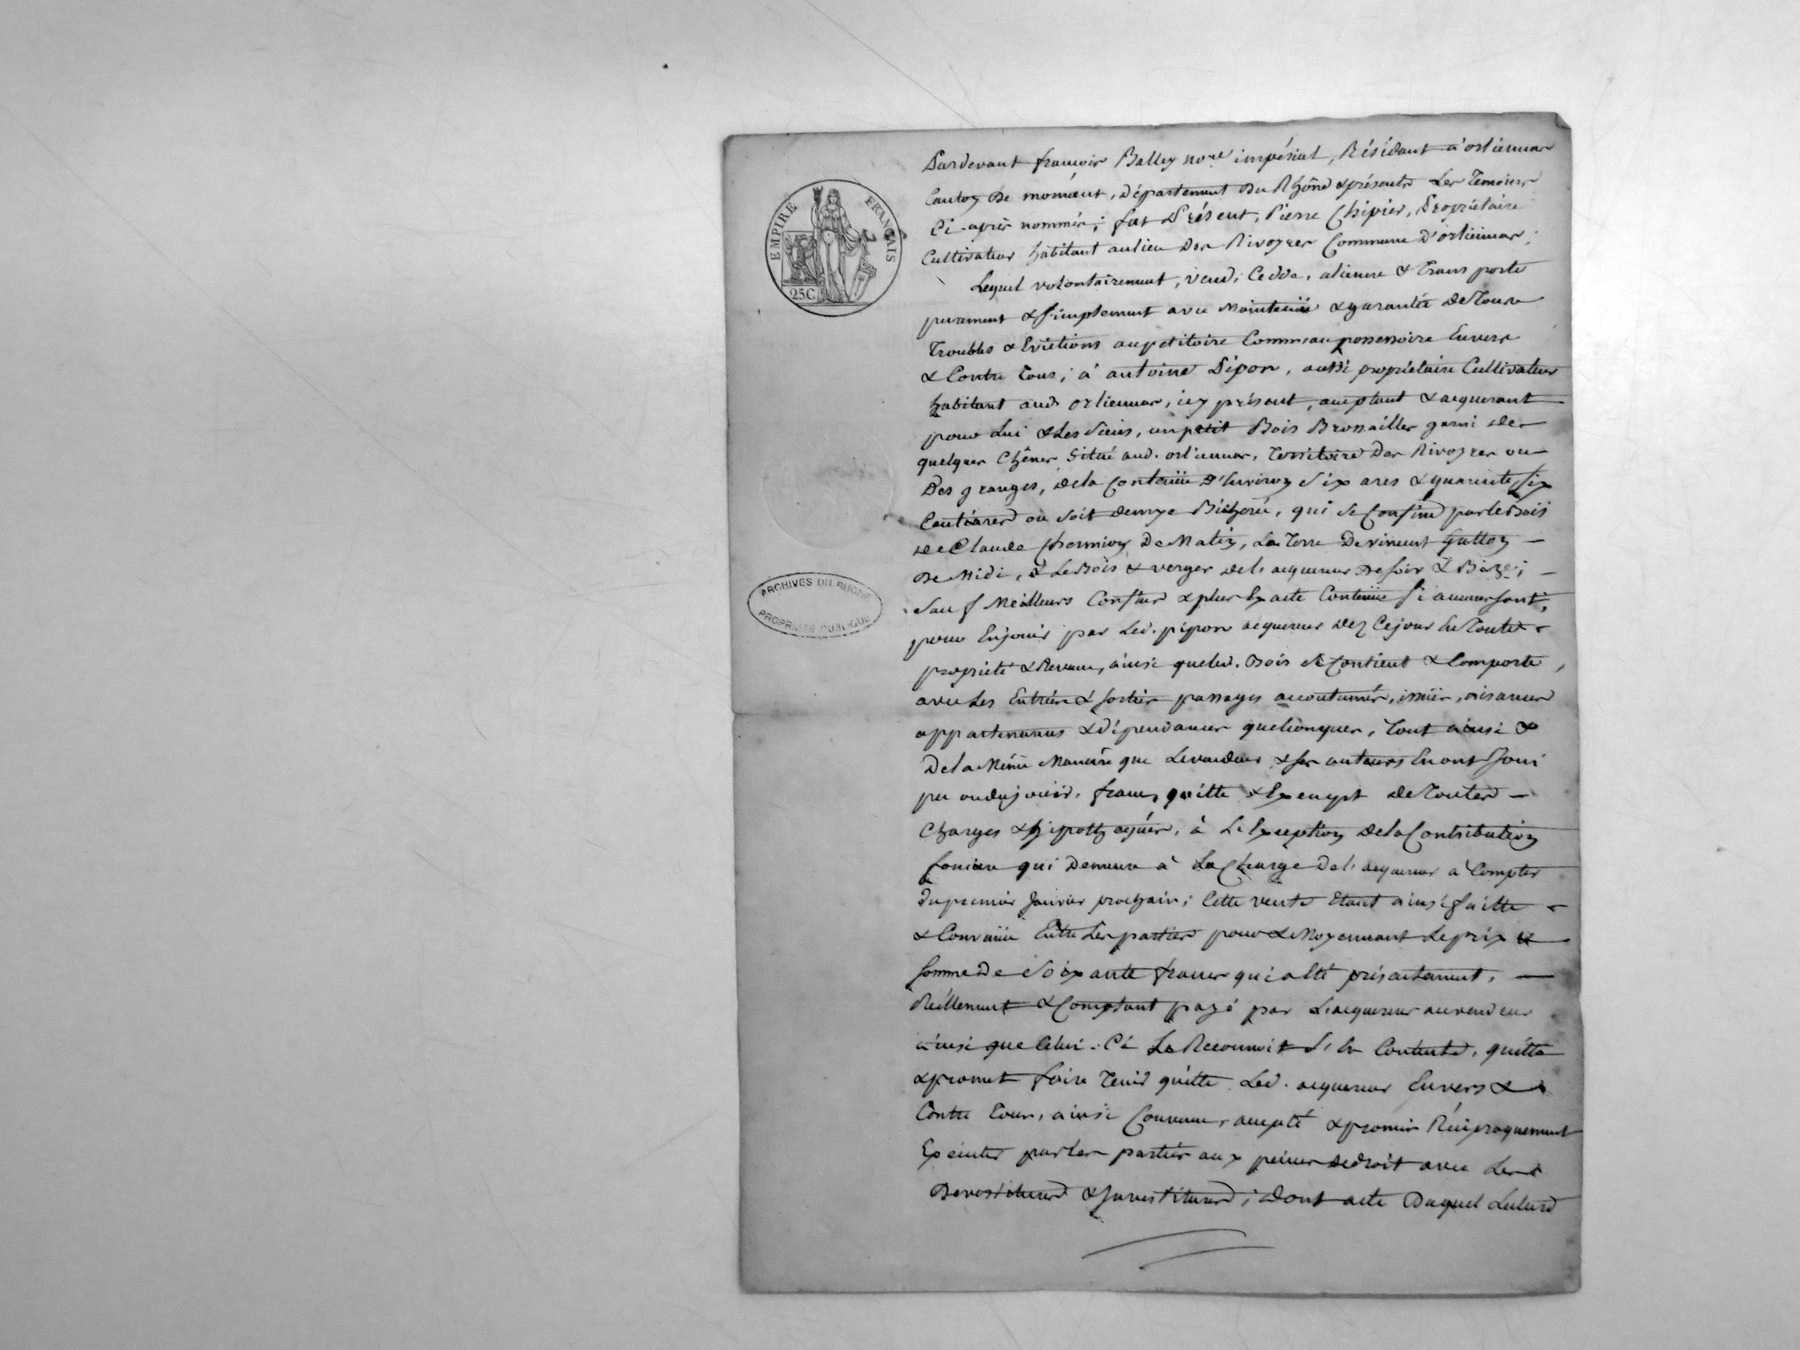 Pardevant françois Balley nore impérial, Résidant à orliennas
Canton De mornant, Département Du Rhône & présents Les Temoins
Ci-après nommés; fut Présent, Pierre Chipier, Propriétaire
Cultivateur habitant au lieu Des Rivoyres Commune D'orliennas;
Lequel volontairement, vend, Cedde, alienne & Transporte
purement & simplement avec Maintenüe & garantie De Tous
Troubles & Evictions au petitoire Comme au possessoire Envers
& Contre Tous; à antoine Pipon, aussi propriétaire Cultivateur
habitant aud. orliennas, icy présent, acceptant & acquerant
pour Lui & Les Siens, un petit Bois Brossailles garni de
quelques Chênes Situé aud. orliennas, Territoire Des Rivoyres ou
Des granges, de la Contenüe D'Environ Six ares & quarante Six
Centiares ou soit demye Bicherée, qui se Confine par le Bois
de Claude Chermion De Matin, La Terre De vincent gullon
De Midi, & Le Bois & verger de l'acquereur De soir & Bize;
Sauf Meilleurs Confins & plus Exacte Contenüe Si aucuns sont,
pour En jouir par Led. pipon acquereur dez Ce jour En Toute
propriété & Revenu, ainsi que led. Bois se Contient & Comporte,
avec Les Entrées & sorties passages accoutumés, issües, aisances
appartenances & dépendances quelconques, Tout ainsi &
De la Même Manière que Le vendeur & ses auteurs En ont Joui
pu ou du jouir, franc, quitte & Exempt de Toutes
Charges & hipothèques, à L'Exception de la Contribution
fonciere qui Demeure à La Charge de l'acquereur à Compter
du premier Janvier prochain; Cette vente Etant ainsi faitte
& Convenüe Entre Les parties pour & Moyennant Le prix &
Somme De Soixante francs qui a Eté présentement,
Réellement & Comptant payé par L'acquereur au vendeur
ainsi que Celui-Ci Le Reconnoit S'En Contente, quitte
& promet faire Tenir quitte Led. acquereur Envers &
Contre Tous, ainsi Convenu, accepté & promis Réciproquement
Exécuter par les parties aux peines de droit avec Les
Devestitures & Investitures; Dont acte Duquel Lecture
EMPIRE FRANÇAIS
25C.
ARCHIVES DU RHÔNE
PROPRIÉTÉ PUBLIQUE